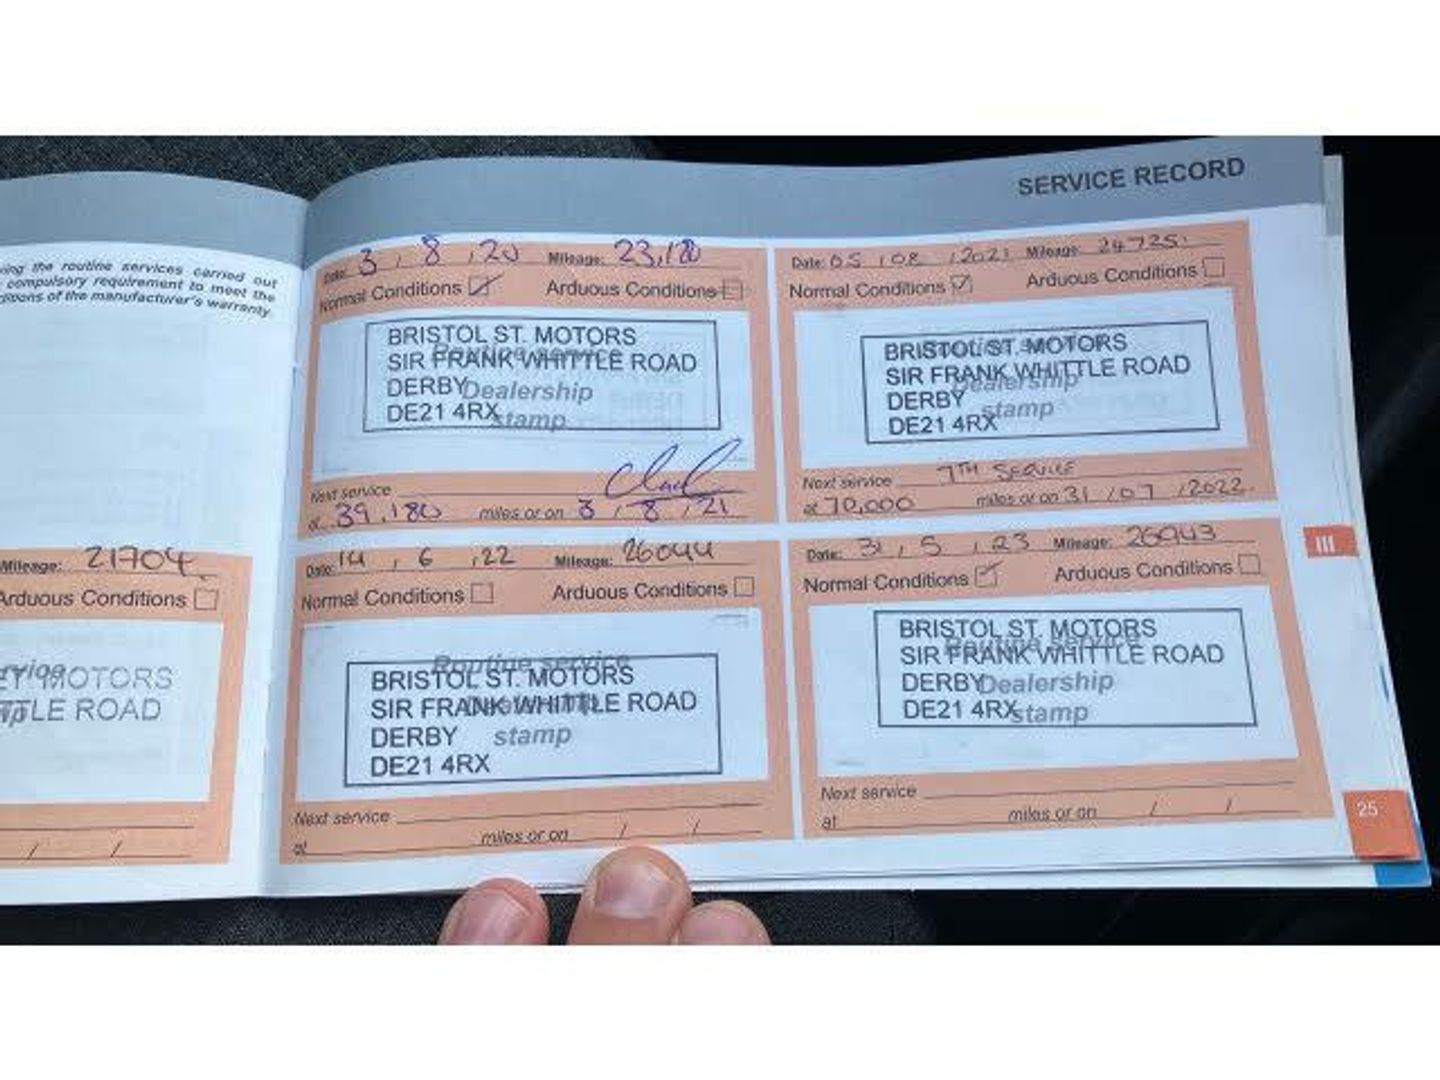 SERVICE RECORD
ing the routine services carried out
compulsory requirement to meet the
ditions of the manufacturer's warranty.
Mileage: 21704
Arduous Conditions
MOTORS
TTLE ROAD
/ /
Date: 3 / 8 / 20 Mileage: 23,180
Normal Conditions Arduous Conditions
BRISTOL ST. MOTORS
SIR FRANK WHITTLE ROAD
DERBY
DE21 4RX
Routine service
Dealership
stamp
Next service
at 39,180 miles or on 3 / 8 / 21
Date: 05 / 08 / 2021 Mileage: 24725
Normal Conditions Arduous Conditions
BRISTOL ST. MOTORS
SIR FRANK WHITTLE ROAD
DERBY
DE21 4RX
Dealership
stamp
Next service 7TH SERVICE
at 70,000 miles or on 31 / 07 / 2022
Date: 14 / 6 / 22 Mileage: 26044
Normal Conditions Arduous Conditions
BRISTOL ST. MOTORS
SIR FRANK WHITTLE ROAD
DERBY
DE21 4RX
Routine service
stamp
Next service
at miles or on / /
Date: 31 / 5 / 23 Mileage: 26943
Normal Conditions Arduous Conditions
BRISTOL ST. MOTORS
SIR FRANK WHITTLE ROAD
DERBY
DE21 4RX
Routine service
Dealership
stamp
Next service
at miles or on / /
III
25